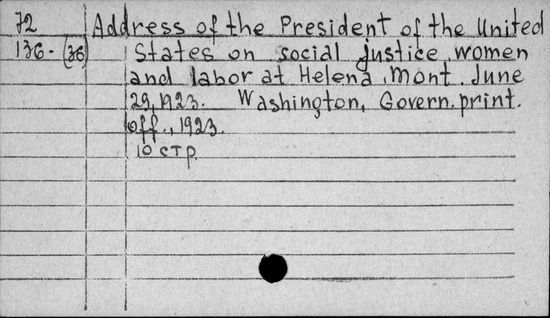 72 Address of the President of the United
136-(36) States on social justice women
and labor at Helena, Mont. June
29, 1923. Washington, Govern. print.
off., 1923.
10 стр.